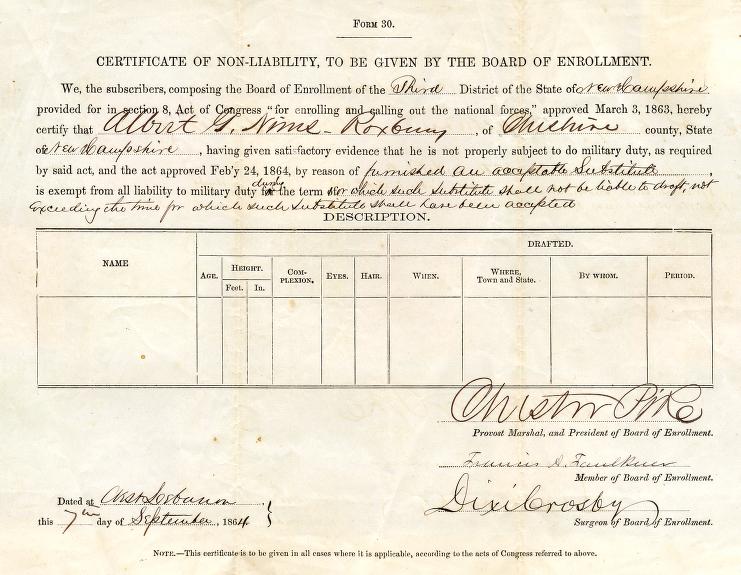 Form 30.
CERTIFICATE OF NON-LIABILITY, TO BE GIVEN BY THE BOARD OF ENROLLMENT.
We, the subscribers, composing the Board of Enrollment of the Third District of the State of New Hampshire
provided for in section 8, Act of Congress "for enrolling and calling out the national forces," approved March 3, 1863, hereby
certify that Albert G. Nims - Roxbury, of Cheshire county, State
of New Hampshire, having given satisfactory evidence that he is not properly subject to do military duty, as required
by said act, and the act approved Feb'y 24, 1864, by reason of furnished an acceptable Substitute
is exempt from all liability to military duty during the term for which such substitute shall not be liable to draft, not
exceeding the time for which such substitute shall have been accepted
DESCRIPTION.
NAME AGE. HEIGHT. Feet. In. COMPLEXION. EYES. HAIR. DRAFTED. WHEN. WHERE, Town and State. BY WHOM. PERIOD.
Chester Pike
Provost Marshal, and President of Board of Enrollment.
Francis A. Faulkner
Member of Board of Enrollment.
Dated at West Lebanon,
Dixi Crosby
this 7th day of September, 1864
Surgeon of Board of Enrollment.
NOTE.—This certificate is to be given in all cases where it is applicable, according to the acts of Congress referred to above.